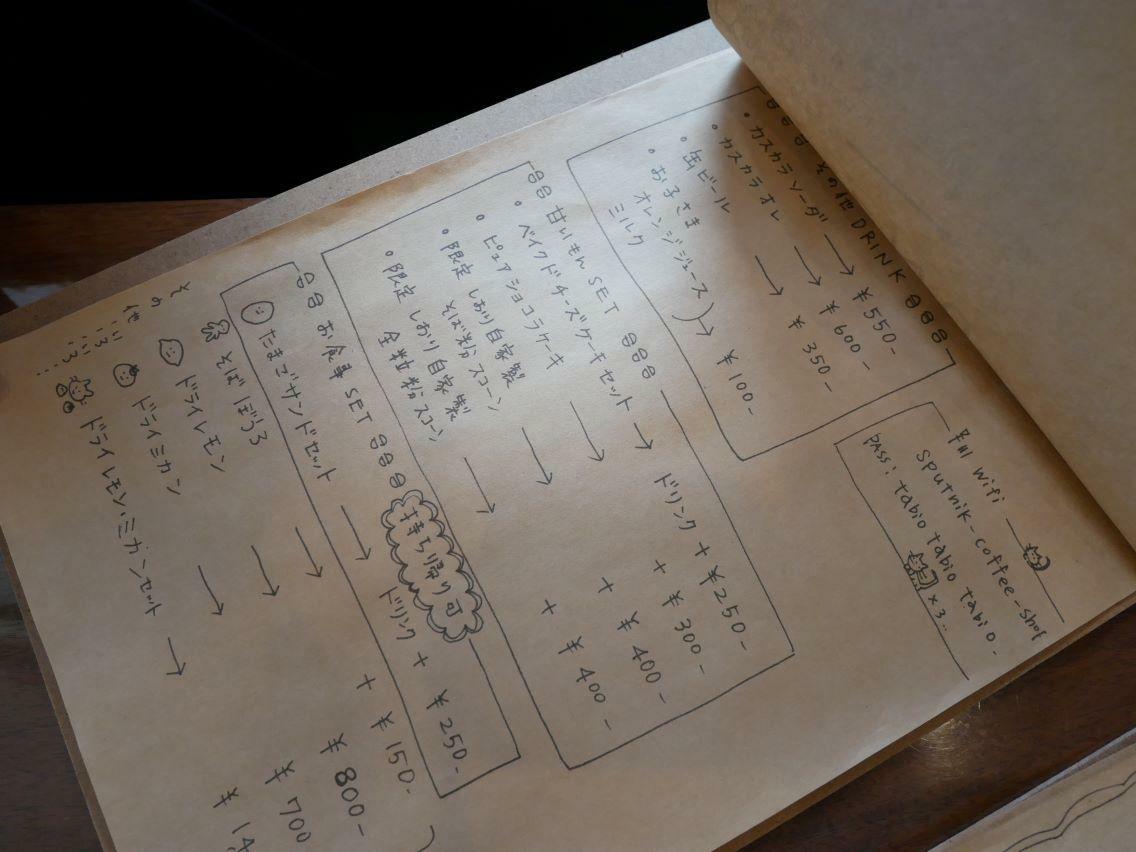 その他 DRINK
・カスカラソーダ → ¥550-
・カスカラオレ → ¥600-
・缶ビール → ¥350-
・お子さま
オレンジジュース
ミルク ) → ¥100-
甘いもん SET
・ベイクドチーズケーキセット → ドリンク + ¥250-
・ピュアショコラケーキ → + ¥300-
・限定 しおり自家製
そば粉スコーン → + ¥400-
・限定 しおり自家製
全粒粉スコーン → + ¥400-
お食事 SET
持ち帰り可
たまごサンドセット → ドリンク + ¥250-
そばぼうろ → + ¥150-
ドライレモン → ¥800-
ドライミカン → ¥700
ドライレモン・ミカンセット → ¥14
その他いろいろ...
wifi
sputnik-coffee-shop
pass: tabio tabio tabio.
×3..